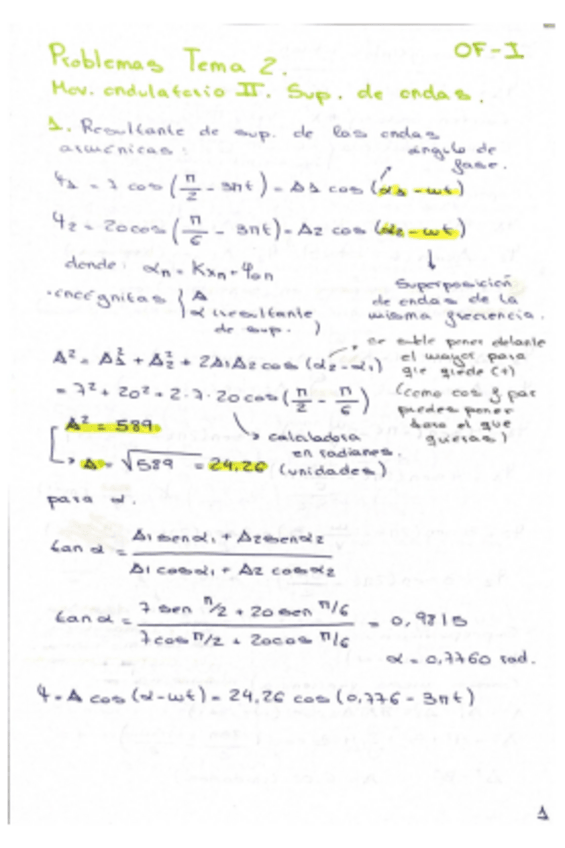 OF-I
Problemas Tema 2.
Mov. ondulatorio II. Sup. de ondas.
1. Resultante de sup. de las ondas
armónicas:
ángulo de
fase.
Ψ1 = 7 cos (π/2 - 3πt) = A1 cos (α1 - ωt)
Ψ2 = 20 cos (π/6 - 3πt) = A2 cos (α2 - ωt)
donde: αn = Kxn + φon
Superposición
de ondas de la
misma frecuencia.
·incógnitas { A
α (resultante
de sup. )
se suele poner delante
el mayor para
que quede (+)
(como cos y par
puedes poner
el que
quieras)
A² = A1² + A2² + 2A1A2 cos (α2 - α1)
= 7² + 20² + 2·7·20 cos (π/2 - π/6)
A² = 589
→ calculadora
en radianes.
→ A = √589 = 24,26 (unidades)
para α.
tan α = (A1 sen α1 + A2 sen α2) / (A1 cos α1 + A2 cos α2)
tan α = (7 sen π/2 + 20 sen π/6) / (7 cos π/2 + 20 cos π/6) = 0,9815
α = 0,7760 rad.
Ψ = A cos (α - ωt) = 24,26 cos (0,776 - 3πt)
1